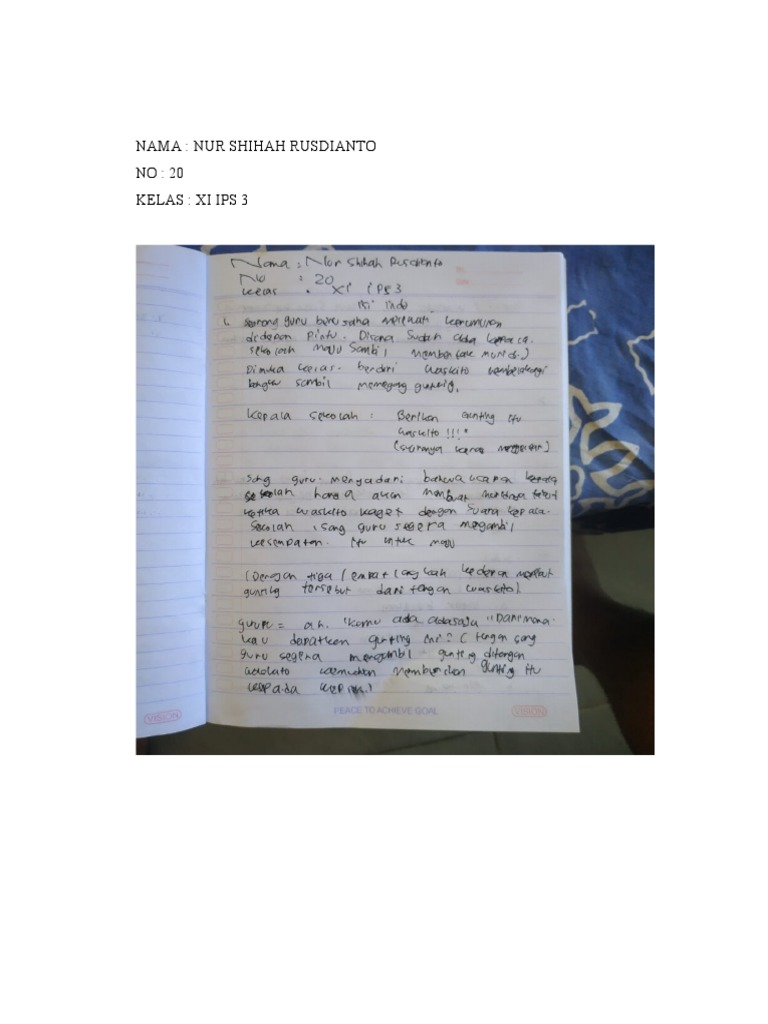 NAMA : NUR SHIHAH RUSDIANTO
NO : 20
KELAS : XI IPS 3
Nama : Nur Shihah Rusdianto
No : 20
Kelas : XI IPS 3
1. Seorang guru berusaha melewati kerumunan
didepan pintu. Disana sudah ada kepala
sekolah maju sambil
Dimuka kelas berdiri Waskito membelakangi
sambil memegang gunting.
Kepala sekolah : Berikan gunting itu
Waskito !!!"
(suaranya keras
Sang guru menyadari bahwa ucapan kepala
sekolah hanya akan membuat
Ketika Waskito kaget dengan suara kepala
sekolah, sang guru segera mengambil
kesempatan itu untuk maju
(Dengan tiga / empat langkah kedepan
gunting tersebut dari tangan Waskito).
guru = ah. "Kamu ada adasaja "Darimana
kau dapatkan gunting ini? ( tangan sang
guru segera mengambil gunting ditangan
Waskito kemudian memberikan gunting itu
kepada
PEACE TO ACHIEVE GOAL
VISION
VISION